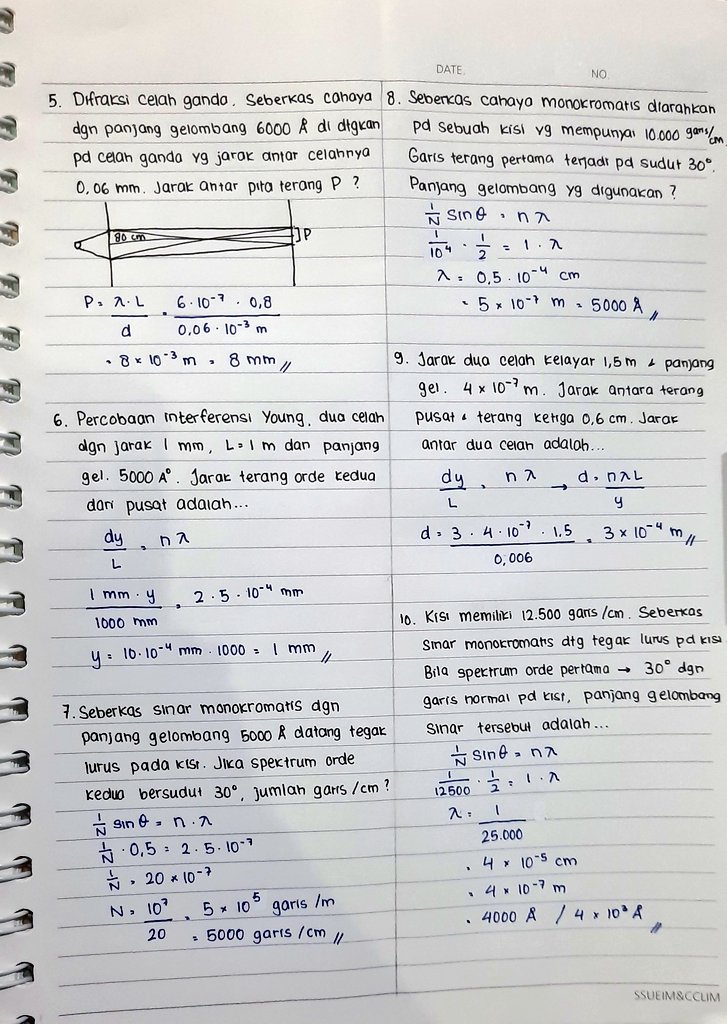 DATE. NO.
5. Difraksi celah ganda. Seberkas cahaya
dgn panjang gelombang 6000 Å di dtgkan
pd celah ganda yg jarak antar celahnya
0,06 mm. Jarak antar pita terang P ?
80 cm
P
P = λ.L / d = 6.10⁻⁷ . 0,8 / 0,06.10⁻³ m
= 8 × 10⁻³ m = 8 mm //
6. Percobaan interferensi Young, dua celah
dgn jarak 1 mm, L = 1 m dan panjang
gel. 5000 A°. Jarak terang orde kedua
dari pusat adalah...
dy / L = nλ
1 mm . y / 1000 mm = 2.5.10⁻⁴ mm
y = 10.10⁻⁴ mm . 1000 = 1 mm //
7. Seberkas sinar monokromatis dgn
panjang gelombang 5000 Å datang tegak
lurus pada kisi. Jika spektrum orde
kedua bersudut 30°, jumlah garis /cm ?
1/N sin θ = n.λ
1/N . 0,5 = 2.5.10⁻⁷
1/N = 20 × 10⁻⁷
N = 10⁷ / 20 = 5 × 10⁵ garis /m
= 5000 garis /cm //
8. Seberkas cahaya monokromatis diarahkan
pd sebuah kisi yg mempunyai 10.000 garis/cm.
Garis terang pertama terjadi pd sudut 30°.
Panjang gelombang yg digunakan ?
1/N sin θ = nλ
1/10⁴ . 1/2 = 1.λ
λ = 0,5.10⁻⁴ cm
= 5 × 10⁻⁷ m = 5000 Å //
9. Jarak dua celah kelayar 1,5 m & panjang
gel. 4 × 10⁻⁷ m. Jarak antara terang
pusat & terang ketiga 0,6 cm. Jarak
antar dua celah adalah...
dy / L = nλ → d = nλL / y
d = 3.4.10⁻⁷.1,5 / 0,006 = 3 × 10⁻⁴ m //
10. Kisi memiliki 12.500 garis /cm. Seberkas
sinar monokromatis dtg tegak lurus pd kisi
Bila spektrum orde pertama → 30° dgn
garis normal pd kisi, panjang gelombang
sinar tersebut adalah...
1/N sin θ = nλ
1/12500 . 1/2 = 1.λ
λ = 1 / 25.000
= 4 × 10⁻⁵ cm
= 4 × 10⁻⁷ m
= 4000 Å / 4 × 10³ Å //
SSUEIM&CCLIM